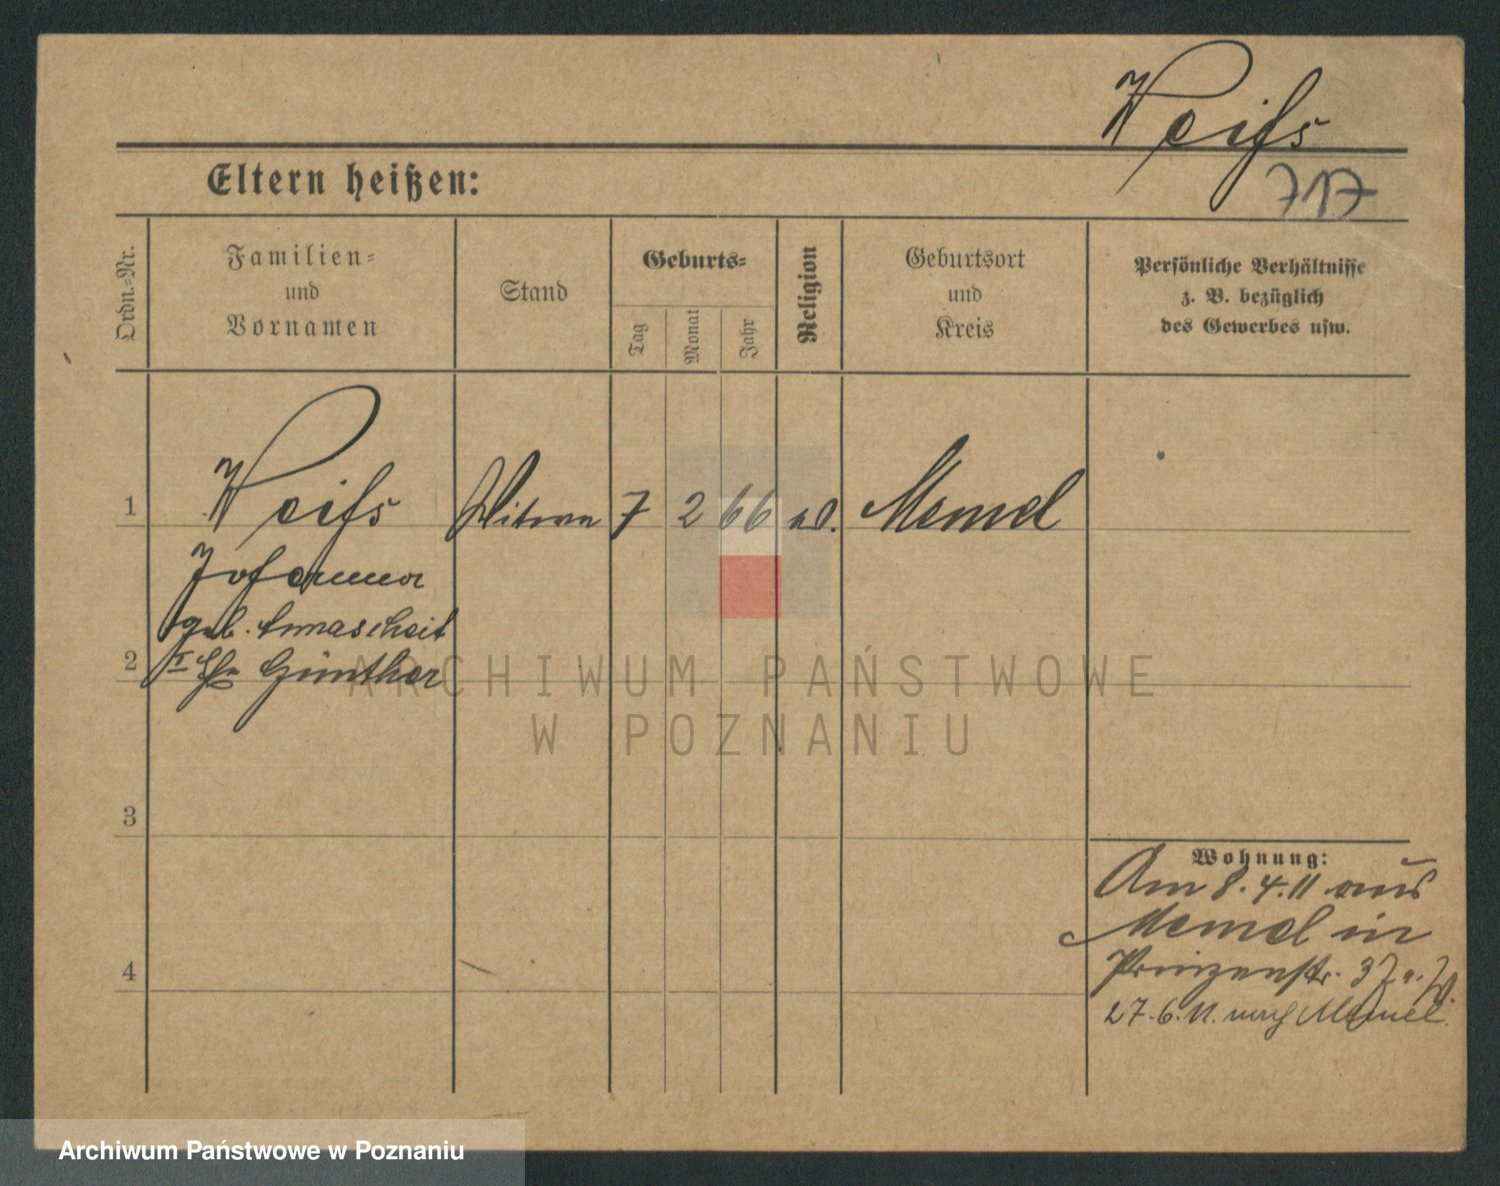 Weiſs
Eltern heißen:
717
Ordn.-Nr.
Familien-
und
Vornamen
Stand
Geburts-
Tag
Monat
Jahr
Religion
Geburtsort
und
Kreis
Persönliche Verhältnisse
z. B. bezüglich
des Gewerbes usw.
1
Weiſs
Witwe
7
2
66
Memel
Johanna
geb.
2
Günther
ARCHIWUM PAŃSTWOWE
W POZNANIU
3
4
Wohnung:
Am 8.4.11 aus
Memel in
Prinzenstr. 37
27.6.11. nach Memel.
Archiwum Państwowe w Poznaniu